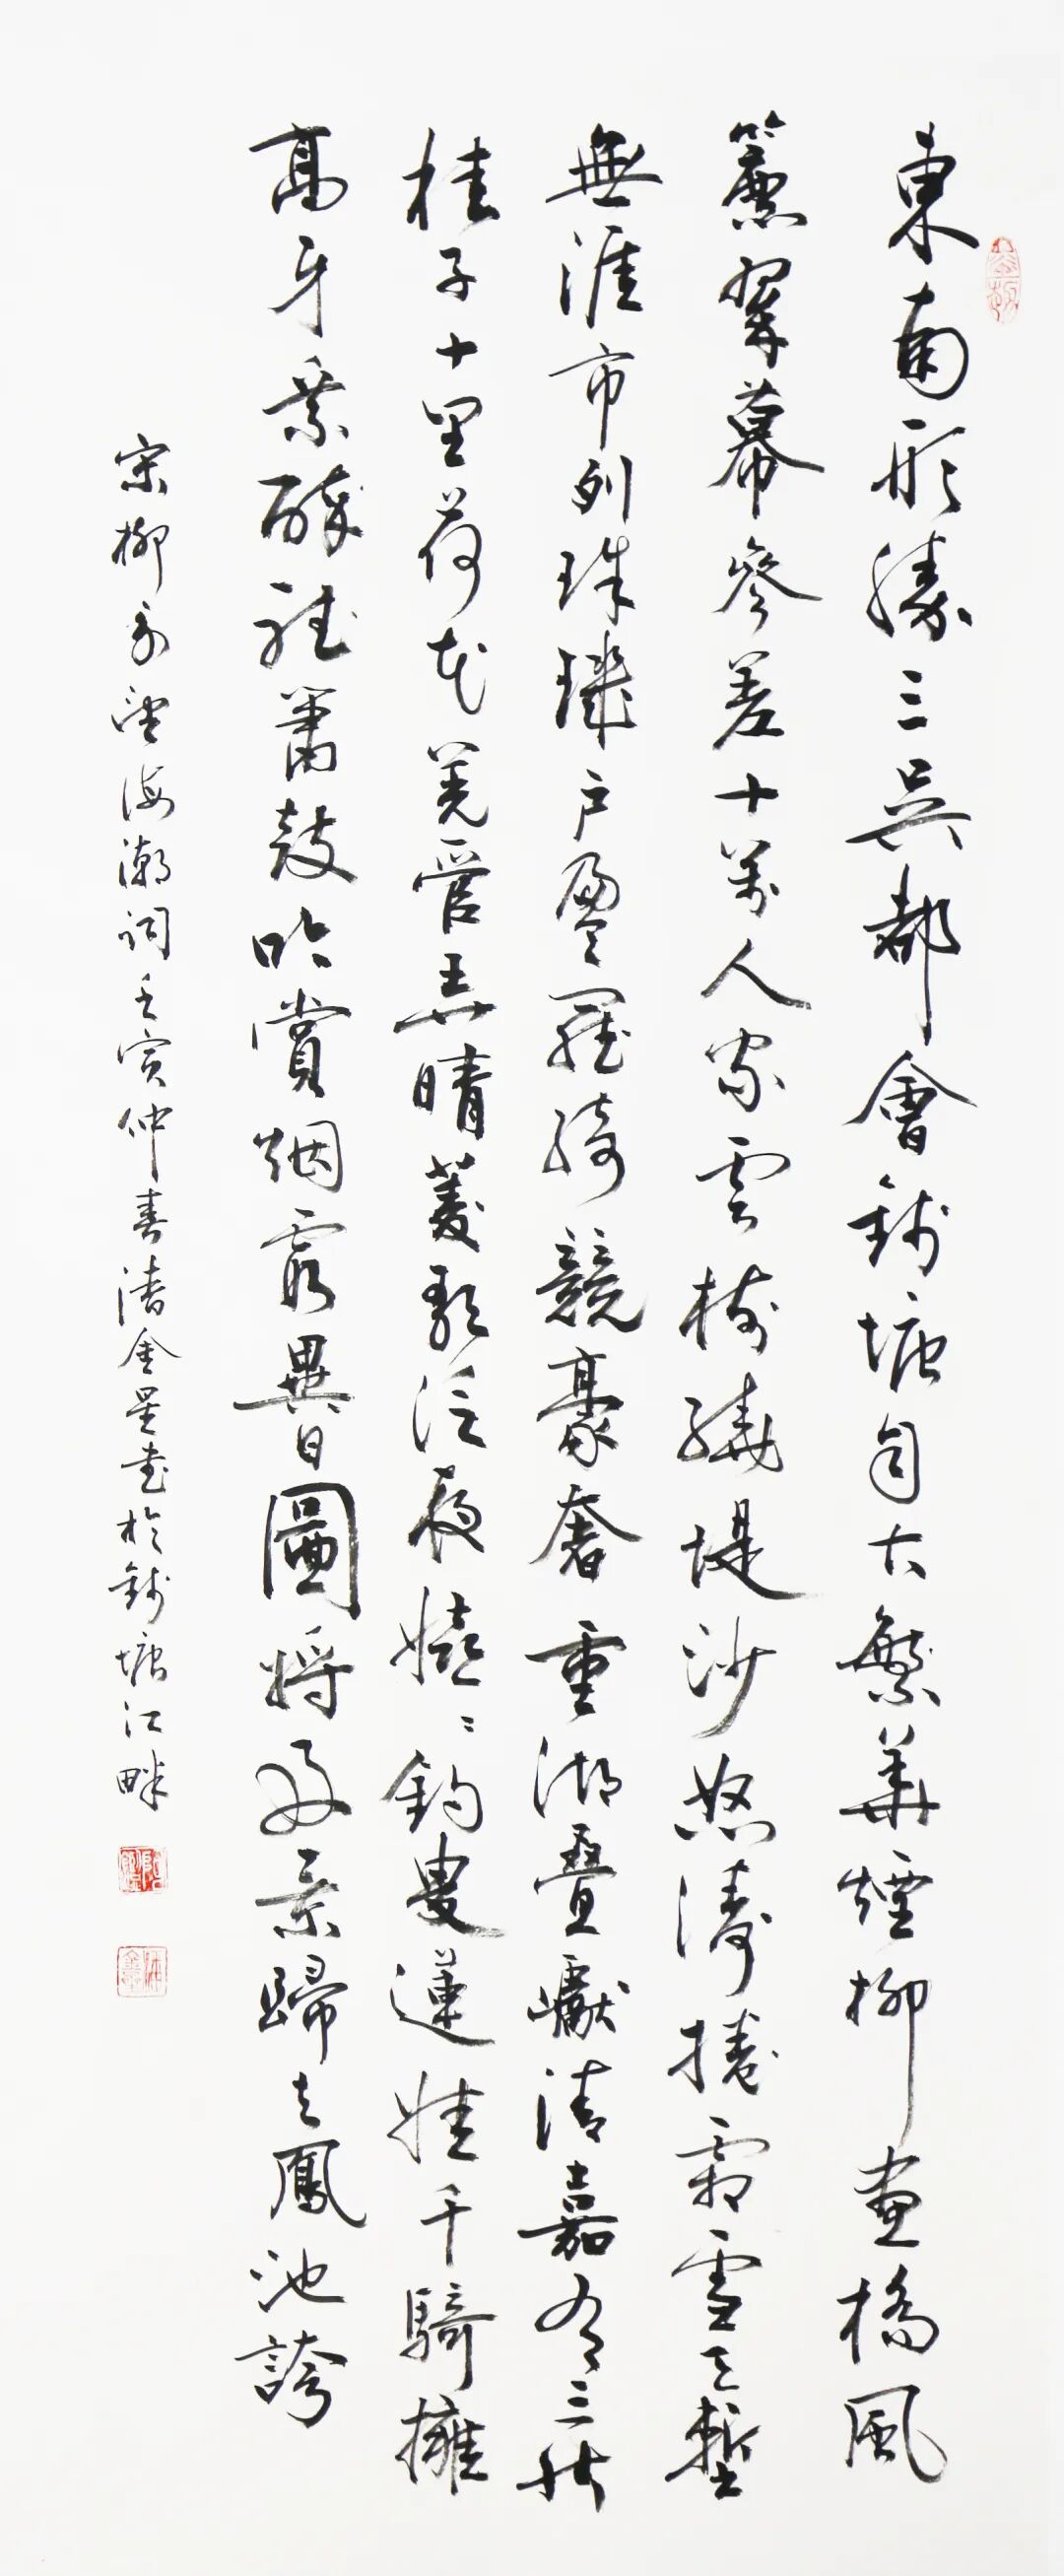 東南形勝三吳都會錢塘自古繁華煙柳畫橋風
簾翠幕參差十萬人家雲樹繞堤沙怒濤捲霜雪天塹
無涯市列珠璣戶盈羅綺競豪奢重湖疊巘清嘉有三秋
桂子十里荷花羌管弄晴菱歌泛夜嬉嬉釣叟蓮娃千騎擁
高牙乘醉聽簫鼓吟賞烟霞異日圖將好景歸去鳳池誇
宋柳永望海潮詞壬寅仲春清金星書於錢塘江畔